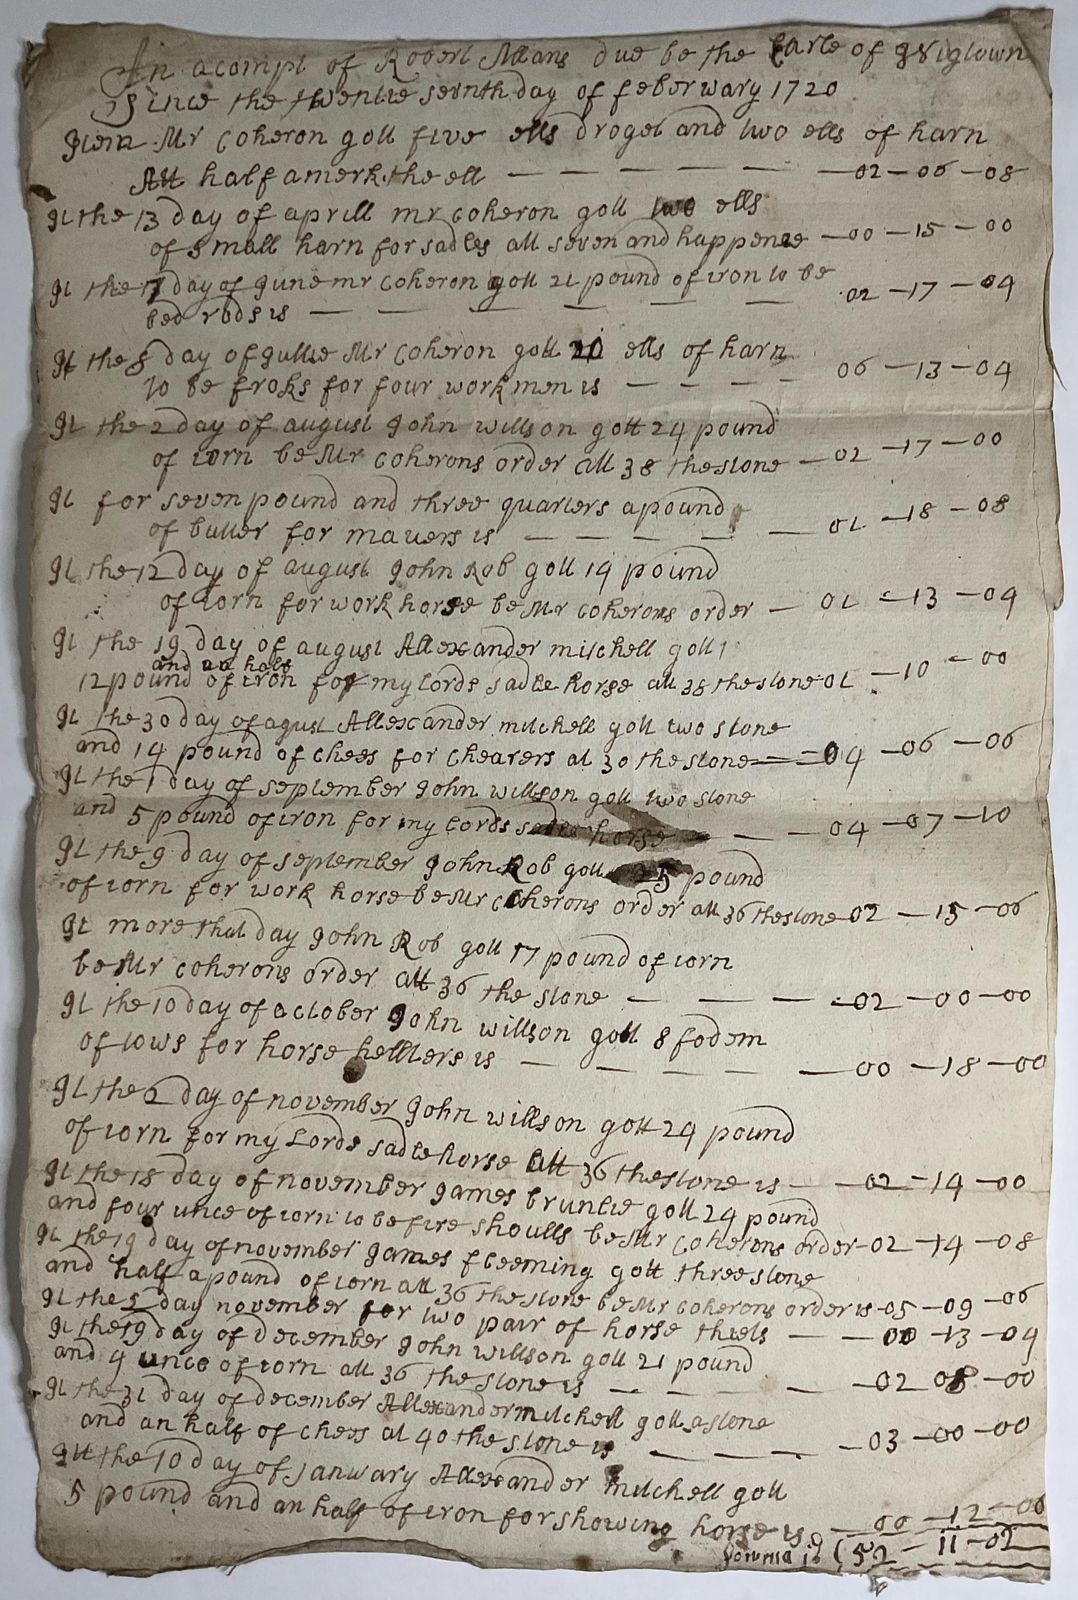 An acompt of Robert Allans due be the Earle of Wigtown
Since the twentie sevnth day of feberwary 1720
Item Mr Coheron gott five ells droget and two ells of harn
Att half a merk the ell — — — — — — 02 — 06 — 08
It the 13 day of aprill mr coheron gott two ells
of small harn for sadles att seven and happenie — 00 — 15 — 00
It the 17 day of June mr coheron gott 21 pound of iron to be
bed rods is — — — — — — 02 — 17 — 04
It the 8 day of Jullie Mr Coheron gott 20 ells of harn
to be froks for four work men is — — — — 06 — 13 — 04
It the 2 day of august John willson gott 24 pound
of iorn be Mr Coherons order att 38 the stone — 02 — 17 — 00
It for seven pound and three quarters a pound
of butter for mavers is — — — — — 01 — 18 — 08
It the 12 day of august John Rob gott 14 pound
of iorn for work horse be Mr Coherons order — 01 — 13 — 04
It the 19 day of august Allexander mitchell gott
and an half
12 pound of iron for my lords sadle horse att 38 the stone 01 — 10 — 00
It the 30 day of agust Allexander mitchell gott two stone
and 14 pound of chees for Chearers at 30 the stone — 04 — 06 — 06
It the 1 day of september John willson gott two stone
and 5 pound of iron for my lords sadle horse — — 04 — 07 — 10
It the 9 day of september John Rob gott 25 pound
of iorn for work horse be Mr Coherons order att 36 the stone 02 — 15 — 06
It more that day John Rob gott 17 pound of iorn
be Mr coherons order att 36 the stone — — — 02 — 00 — 00
It the 10 day of october John willson gott 8 fodem
of tows for horse hellters is — — — — — 00 — 18 — 00
It the 2 day of november John willson gott 24 pound
of iorn for my Lords sadle horse att 36 the stone is — 02 — 14 — 00
It the 18 day of november James bruntie gott 24 pound
and four unce of iorn to be fire shoulls be Mr Coherons order — 02 — 14 — 08
It the 19 day of november James fleeming gott three stone
and half a pound of iorn att 36 the stone be Mr coherons order is — 05 — 09 — 06
It the 5 day november for two pair of horse thiels — — 00 — 13 — 04
It the 19 day of december John willson gott 21 pound
and 4 unce of iorn att 36 the stone is — — — — 02 08 — 00
It the 31 day of december Allexander mitchell gott a stone
and an half of chees at 40 the stone is — — — 03 — 00 — 00
Itt the 10 day of Janwary Allexander mitchell gott
5 pound and an half of iron for showing horse is — 00 — 12 — 00
Somma is 52 — 11 — 02